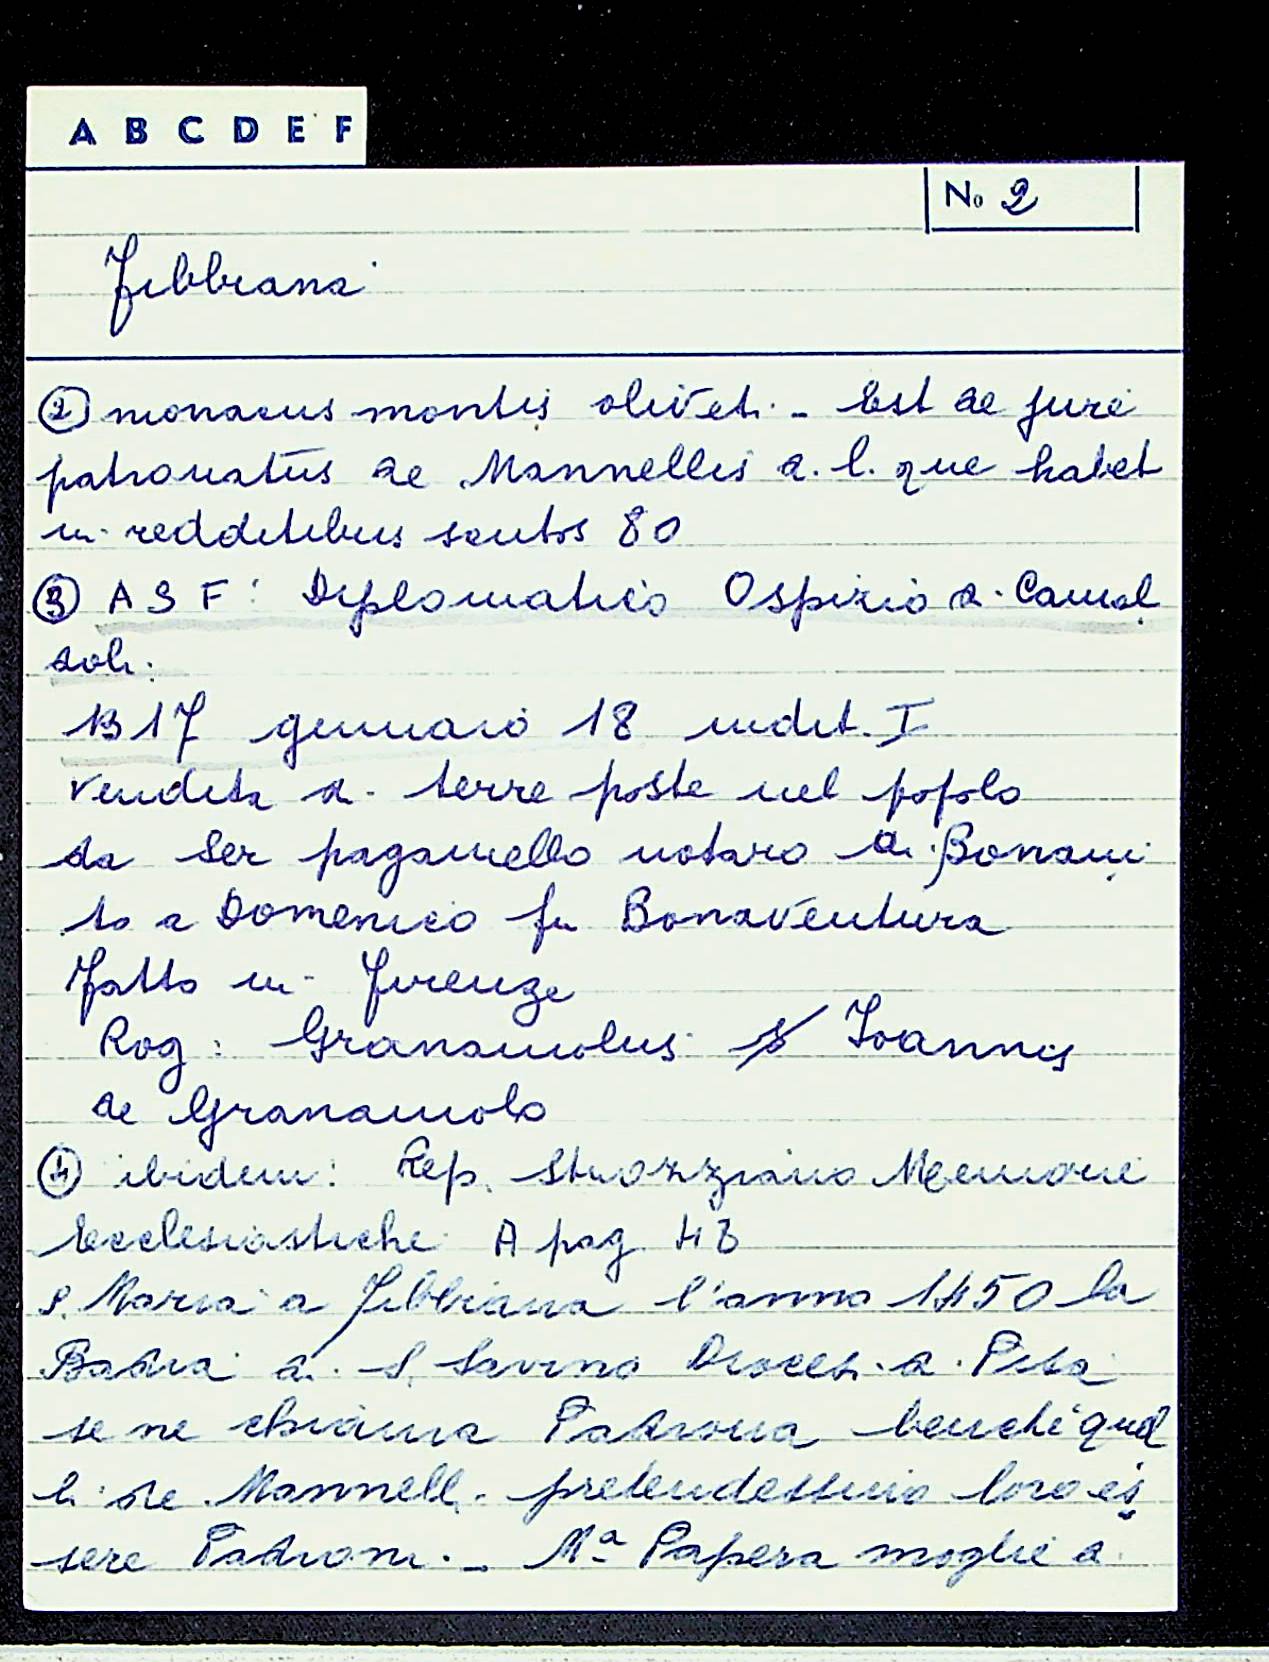 A B C D E F
No 2
Fibbiana
② monacus montis oliveti - Est de jure
patronatus de Mannellis d. l. que habet
in redditibus scutos 80
③ ASF: Diplomatico Ospizio di Camal
doli.
1317 gennaio 18 indit. I
vendita di terre poste nel popolo
da Ser paganello notaro di Bonami
to a Domenico fu Bonaventura
fatto in Firenze
Rog: Granaiolus Ioannis
de Granaiolo
④ ibidem: Rep. Strozziano Memorie
Ecclesiastiche A pag 48
S. Maria a Fibbiana l'anno 1450 la
Badia di S. Savino Diocesi di Pisa
se ne chiama Padrona benchè quel
li de Mannelli pretendessino loro es
sere Padroni - Mª Papera moglie d